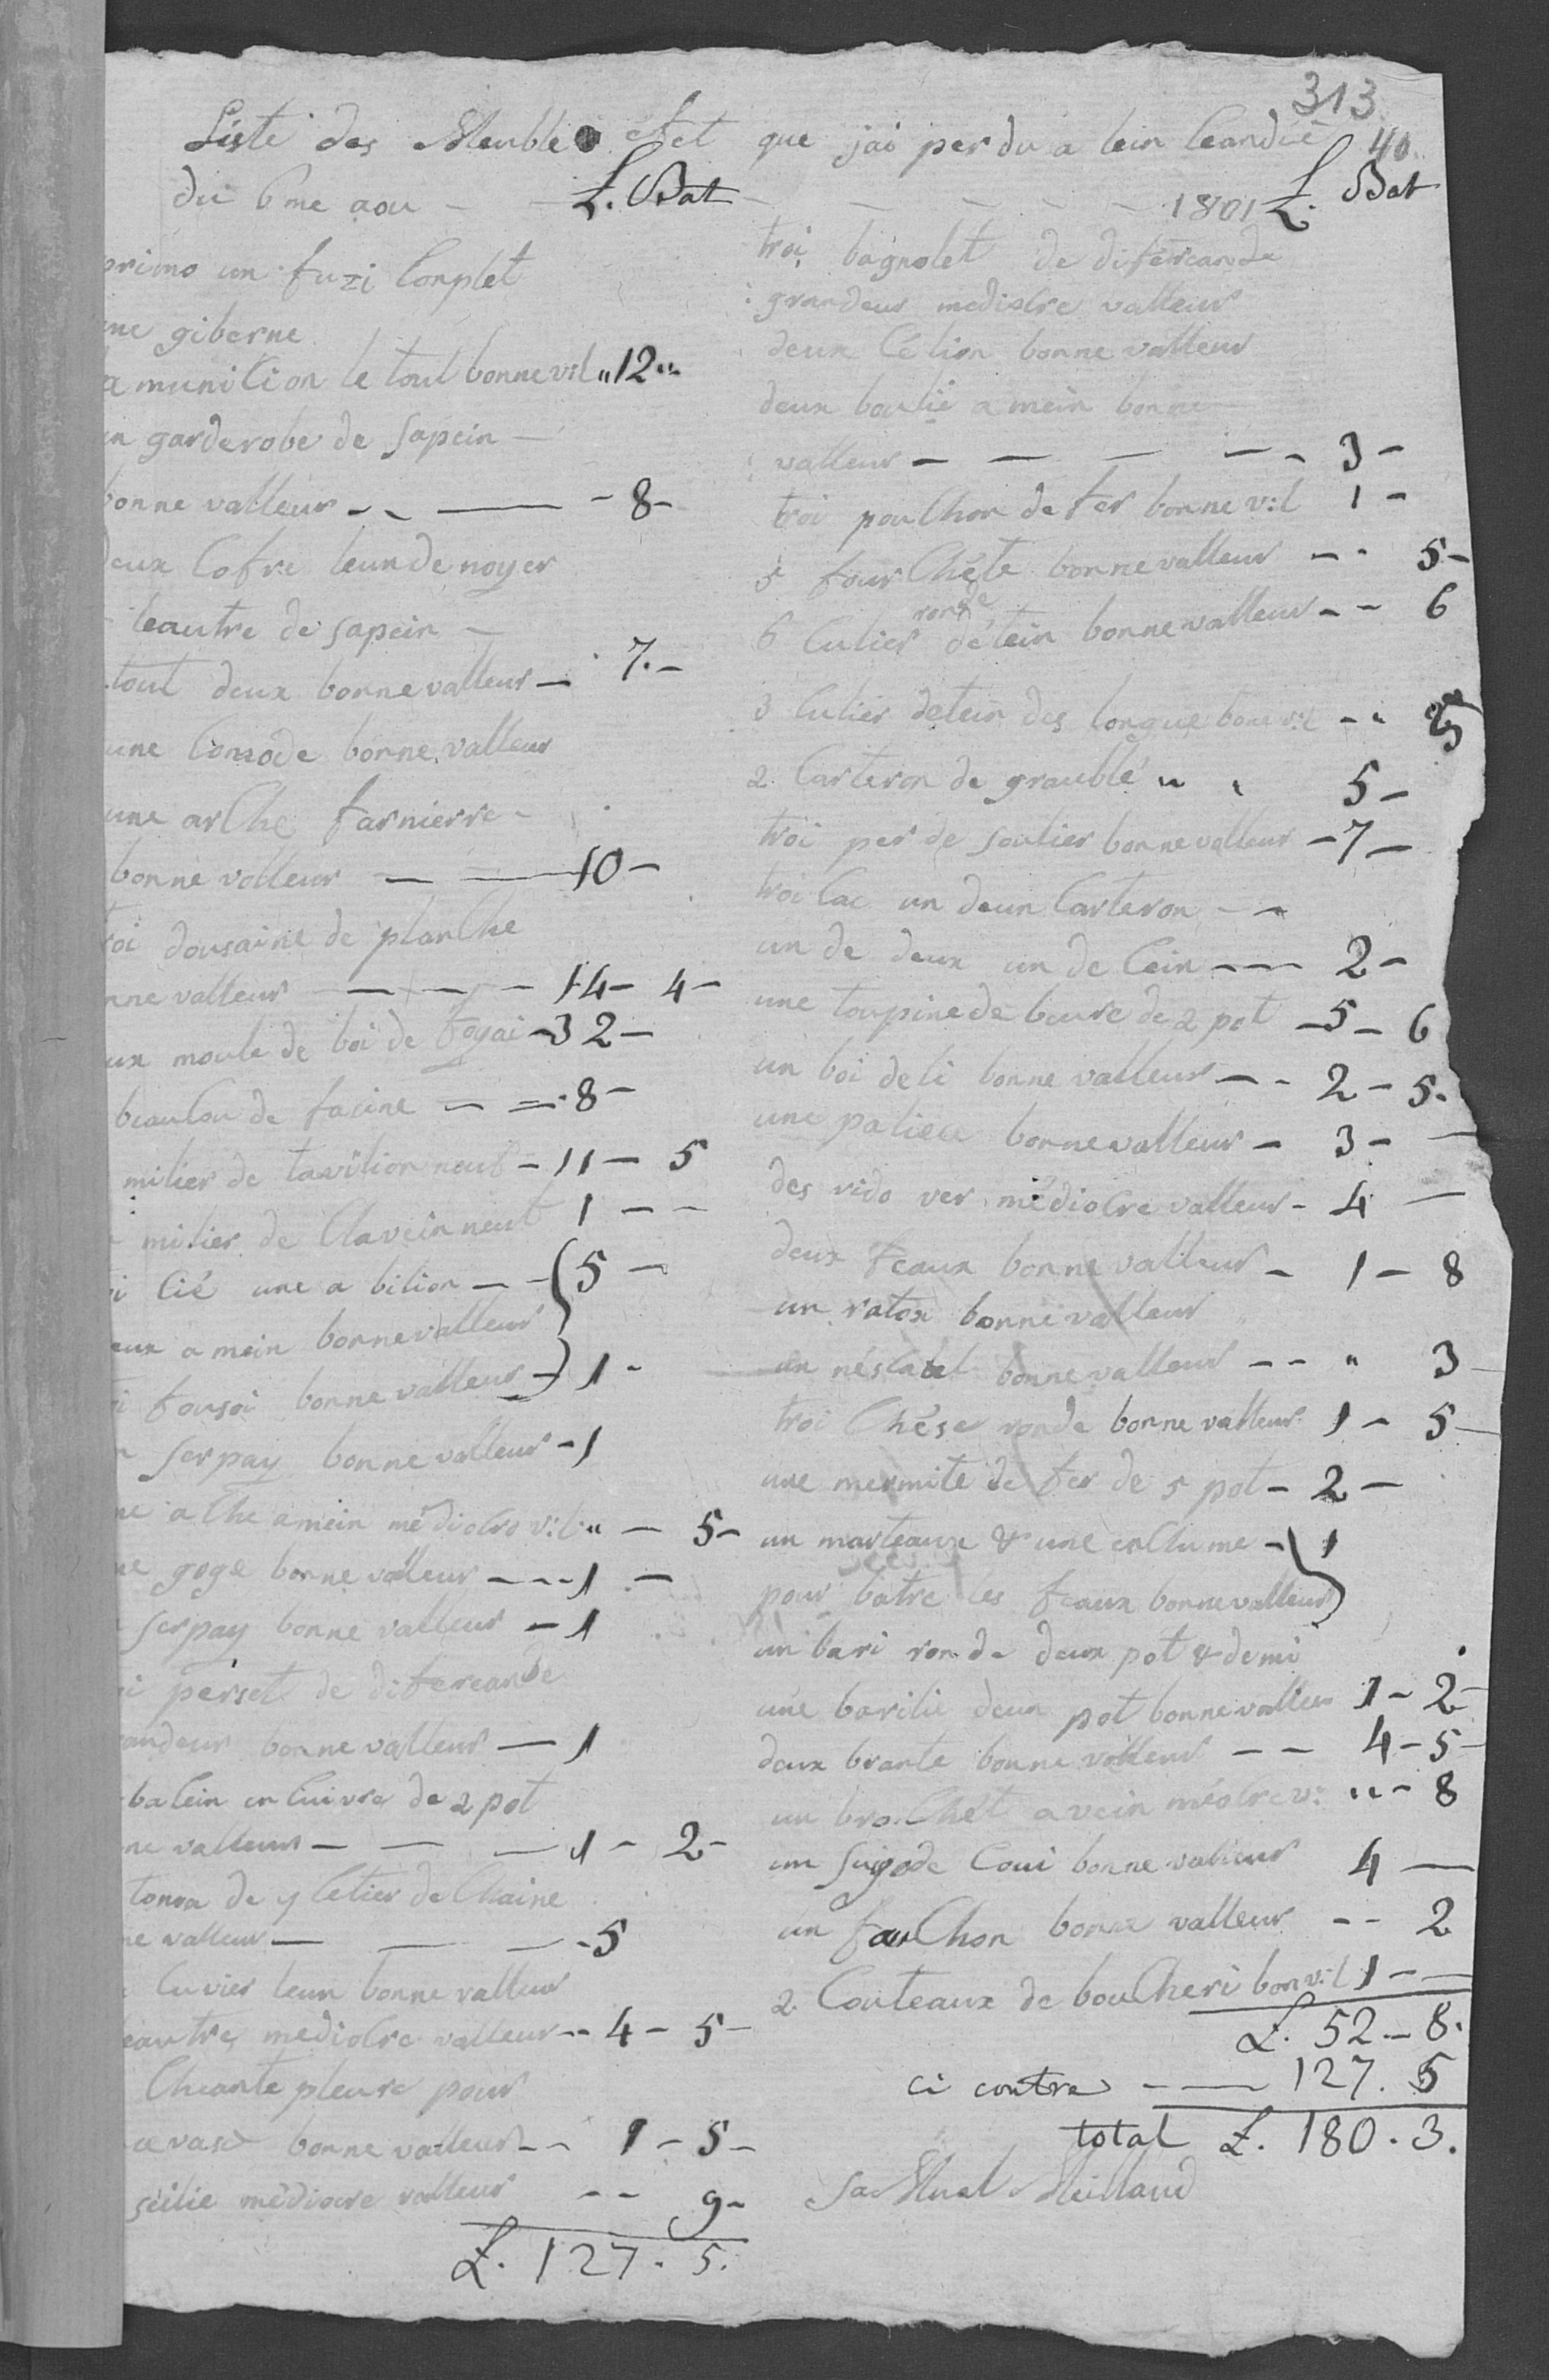 313
40
Liste des Meuble éfet que jai perdu a lein Ceandié
du 6me aou - L. Bat - - - - 1801 L. Bat
primo un fuzi Conplet
une giberne
la munition le tout bonne v:l " 12 "
un garderobe de Sapein -
bonne valleur - - - 8 -
deux Cofre leun de noyer
leautre de sapein -
tout deux bonne valleur - 7. -
une Comode bonne valleur
une arChe farnierre -
bonne valleur - - 10 -
troi dousaine de planChe
bonne valleur - - - 14 - 4 -
deux moule de boi de foyai - 32 -
beauCou de facine - - 8 -
milier de tavilion neuf - 11 - 5
milier de Clavein neuf 1 - -
Cié une a bilion - - 5 -
deux a mein bonne valleur
fousoi bonne valleur - 1 -
serpay bonne valleur - 1
une aChe a mein médiolre v:l " - 5 -
une goge bonne valleur - - - 1 -
serpay bonne valleur - 1
perset de difereande
grandeur bonne valleur - 1
balein en Cuivre de 2 pot
bonne valleur - - - 1 - 2 -
de 4 Cetier de Chaine
bonne valleur - - - 5
Cuvier leun bonne valleur
leautre mediolre valleur - - 4 - 5 -
Cheante pleure pour
bonne valleur - - 1 - 5 -
seilie médiocre valleur - - 9 -
L. 127 . 5.
troi bagnolet de difereande
grandeur mediolre valleur
deux Célion bonne valleur
deux a mein bonne
valleur - - - - - 3 -
troi pouChon de fer bonne v:l 1 -
5 fourChéte bonne valleur - - 5 -
6 Culier ronde détein bonne valleur - - 6
3 Culier detein des longue bone v:l - - 5
2 Carteron de graublé " " 5 -
troi per de soulier bonne valleur - 7 -
troi Cac un deun Carteron - -
un de deux un de Cein - - - 2 -
une toupine de beure de 2 pot - 5 - 6
un boi de li bonne valleur - - 2 - 5.
une paliece bonne valleur - 3 - -
des rido ver médiolre valleur - 4 -
deux feaux bonne valleur - 1 - 8
un ratox bonne valleur
un bonne valleur - - " 3
troi Chése ronde bonne valleur 1 - 5 -
une mermite de fer de 5 pot - 2 -
un marteaux & une enClume - 1
pour batre les feaux bonne valleur
un bari ron de deux pot & demi
une barilie deun pot bonne valleur 1 - 2 -
deux brante bonne valleur - - 4 - 5 -
un broChét a vein v: " - 8
un Coui bonne valleur 4 -
un fauChon bonne valleur - - 2
2 Couteaux de bouCheri bon v:l 1 - -
L. 52 - 8.
ci contre - - 127 . 5
total L. 180 . 3.
SaMuel Meilland